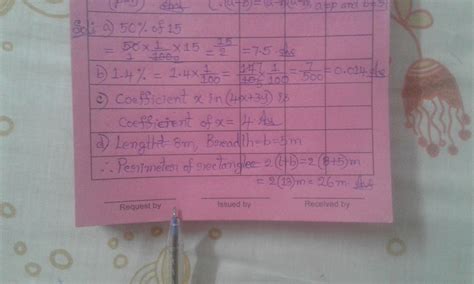 Sol: a) 50% of 15
= 50/1 × 1/100 × 15 = 15/2 = 7.5 Ans
b) 1.4% = 1.4 × 1/100 = 1/100 = 7/500 = 0.014 Ans
c) Coefficient x in (4x+3y) is
Coefficient of x = 4 Ans
d) Length = 8m, Breadth = b = 5m
∴ Perimeter of rectangle = 2(l+b) = 2(8+5)m
= 2(13)m = 26m Ans
Request by Issued by Received by